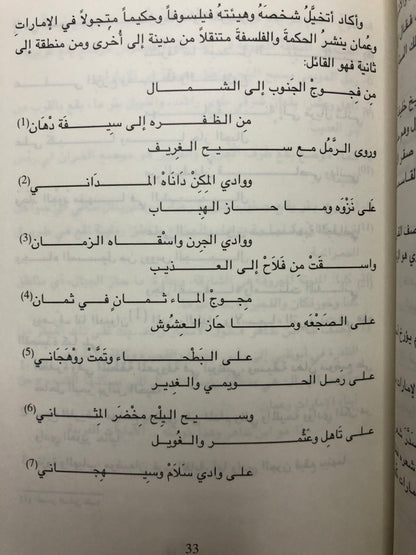 وأكاد أتخيَّل شخصَهُ وهيئتهُ فيلسوفاً وحكيماً متجولاً في الإمارات
وعُمان ينشرُ الحكمةَ والفلسفةَ متنقلاً من مدينة إلى أُخرى ومن منطقة إلى
ثانية فهو القائل:
مِن فِجوجْ الجَنوب إلى الشمال
مِن الظفره إلى سِيفَة دْهَان(1)
وروى الرمْل مع سيح الغريف
ووادي المِكنْ دَانَاهْ المدَاني(2)
عَلى نَزْوَه وما حاز الهِبَاب
ووادي الجرن واسْقَاه الزمان(3)
واسقَتْ مِن فَلَاحْ إلى العذيب
مِجوجْ الماء ثمان في ثمان(4)
على الصجْعَه وما حَاز العِشُوش
على البَطْحاء وتَمَّتْ روْهجَاني(5)
على رَمل الحويمي والغدير
وسيح اليِلْح مخْضَر المِثاني(6)
على تَاهِل وعَثْمر والغْويل
على وادي سَلَامْ وسيْهجاني(7)
33